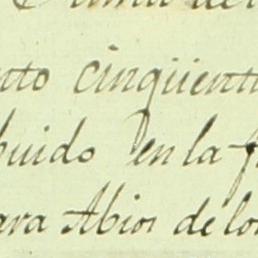 nto cinqüent
buido en la f
ara Abior de lo